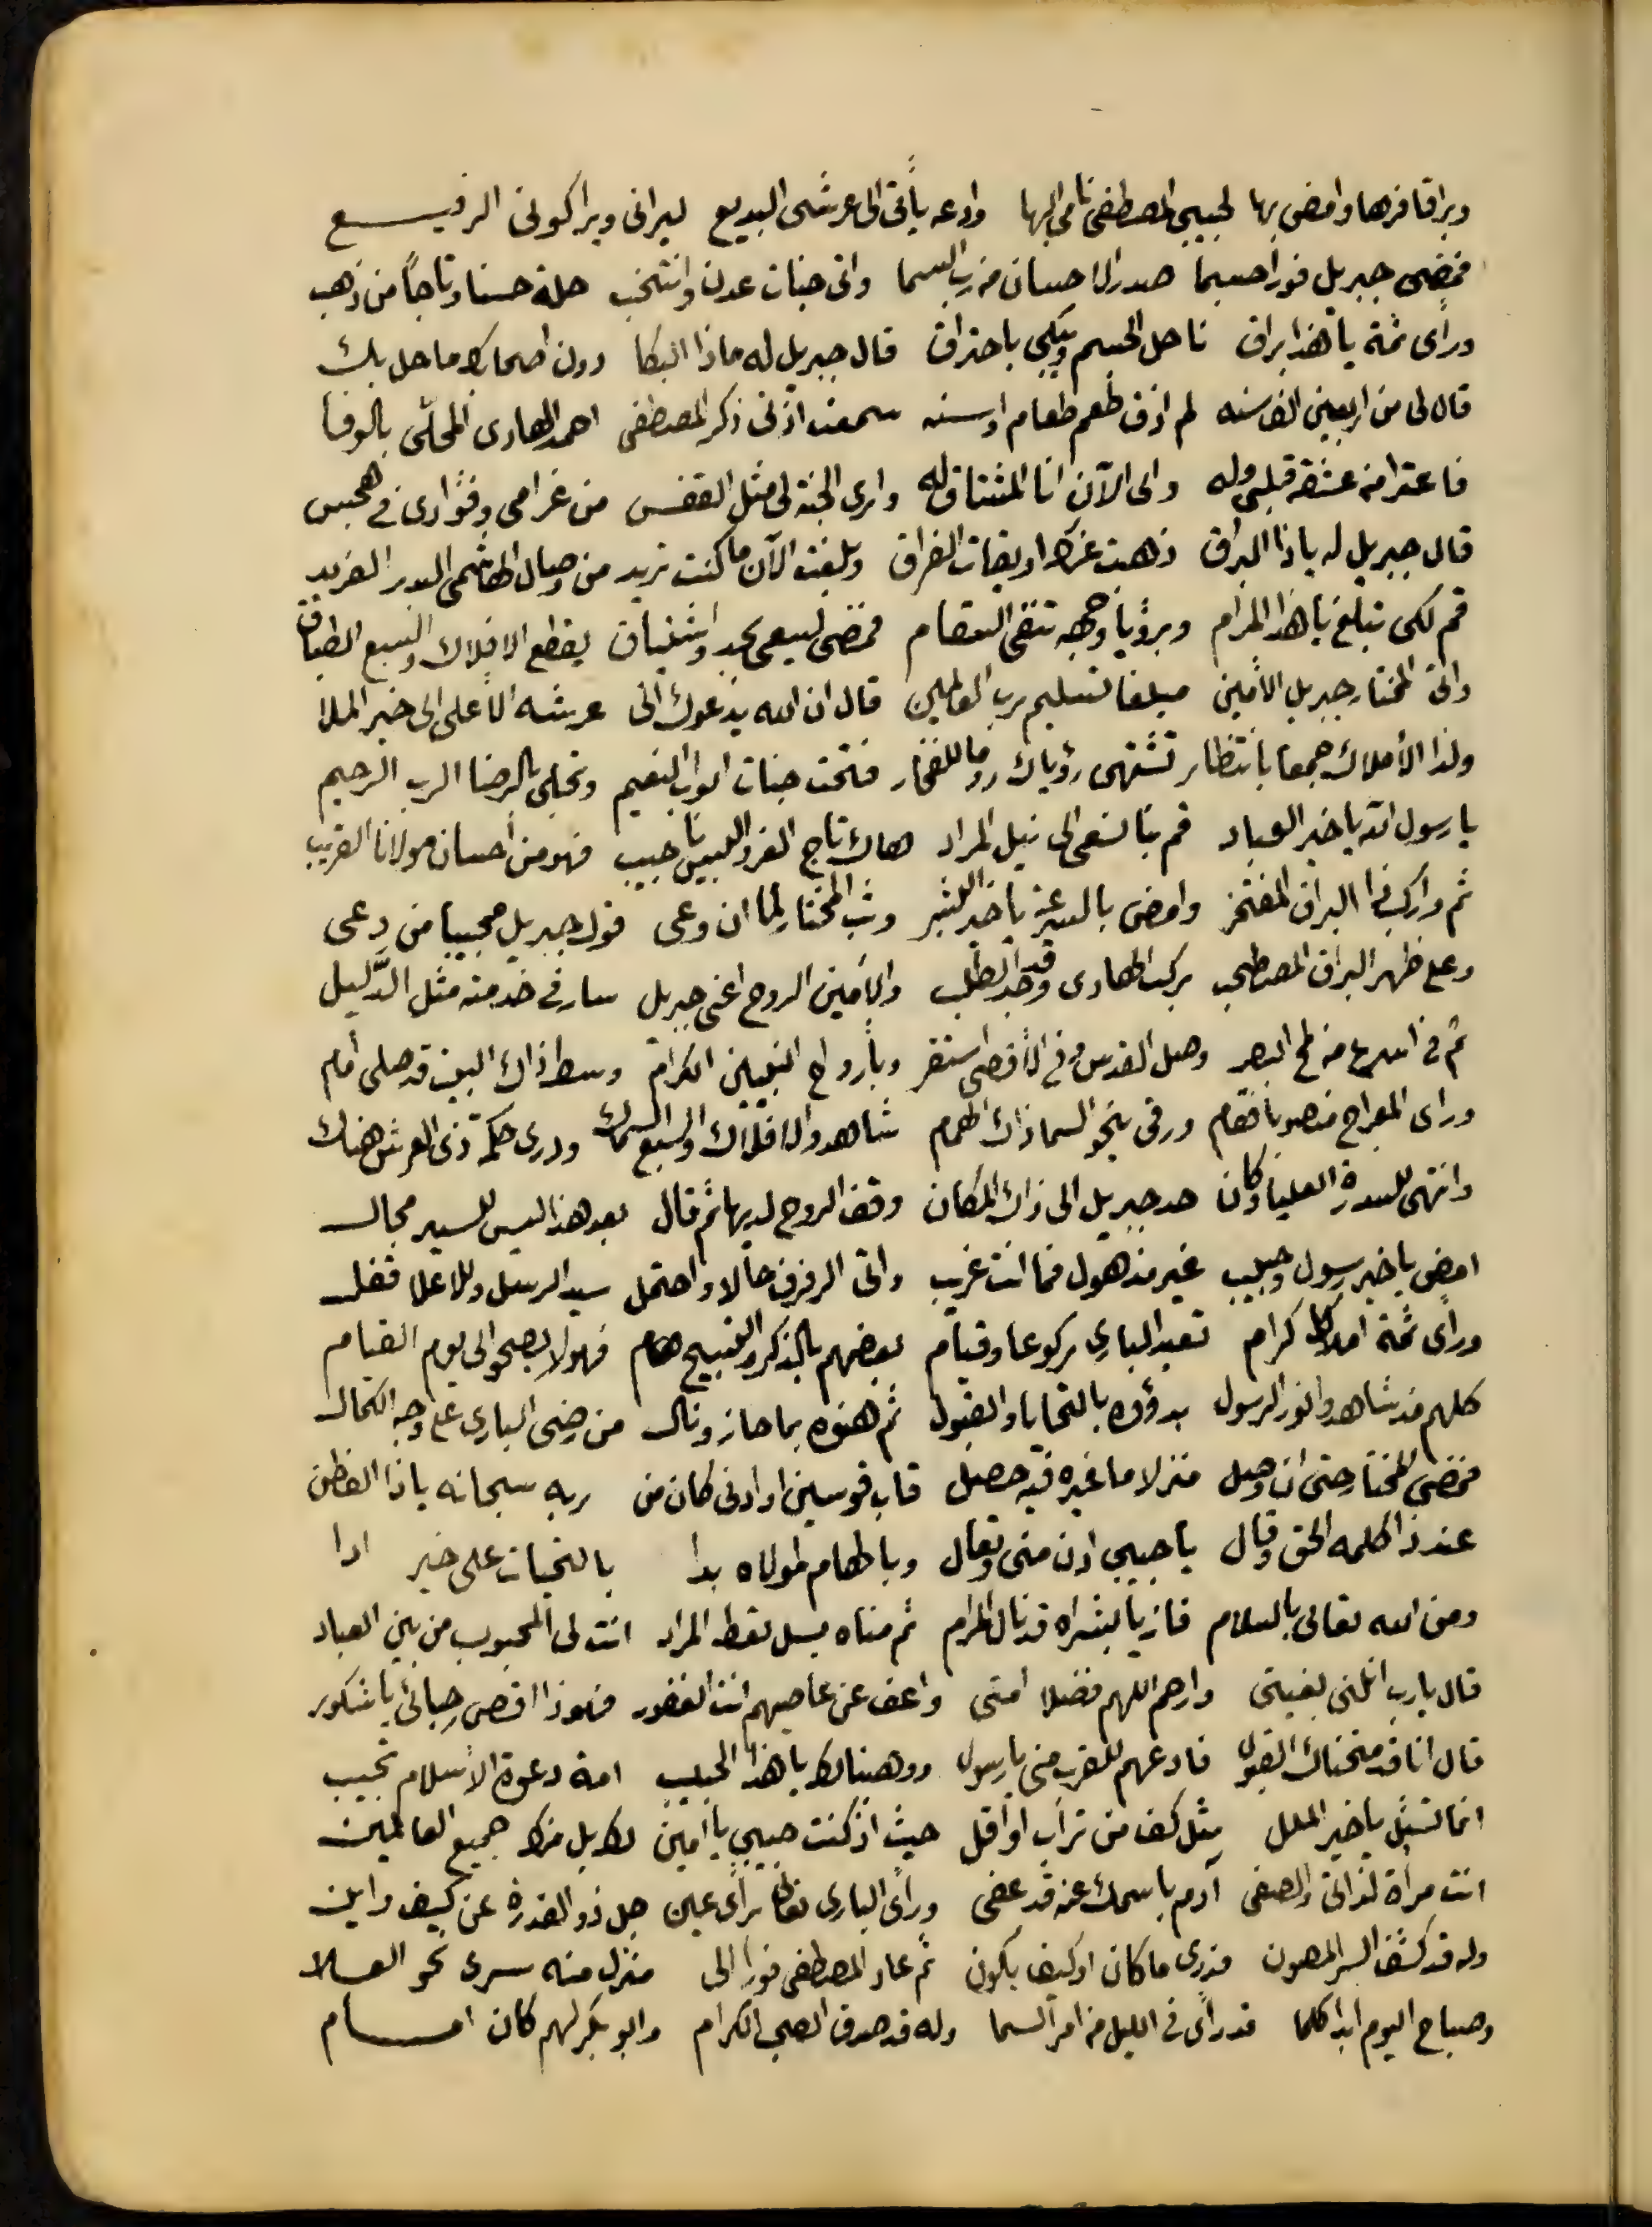 وبراقا فرها وامض بها لحبيبي المصطفى نامي البها وادعه يأتي الى عرشي البديع ليراني ويرا كوني الرفيع
فمضى جبريل فورا حسبما صدر الاحسان من رب السما واتى جنات عدن وانتخب حلة حسنا وتاجاً من ذهب
ورأى ثمة يا هذا براق ناحل الجسم ويبكي باحتراق قال جبريل له ماذا البكا دون اصحابك ما حل بك
قال لى من اربعين الف سنه لم اذق طعم طعام او سنه سمعت اذني ذكر المصطفى احمد الهادى المحلّى بالوفا
فاعترا من عشقه قلبي وله والى الآن انا المشتاق له وارى الجنة لى مثل القفس من غرامي وفؤادى في هجس
قال جبريل له ياذا البراق ذهبت عنك اويقات الفراق وبلغت الآن ما كنت تريد من وصال الهاشمي البدر الفريد
قم لكى تبلغ يا هذا المرام وبرؤيا وجهه تنفى السقام فمضى ليسعى بجد واشتياق يقطع الافلاك والسبع الطباق
واتى المختار جبريل الأمين مبلغا تسليم رب العالمين قال ان الله يدعوك الى عرشه الأعلى الى خير الملا
ولذا الأملاك جمعا بانتظار تشتهي رؤياك روما للفخار فتحت جنات ابواب النعيم وتجلى بالرضا الرب الرحيم
يا رسول الله يا خير العباد قم بنا نسعى الى نيل المراد هاك تاج العز البس يا حبيب فهو من أحسان مولانا القريب
ثم واركب ذا البراق المفتخر وامض بالسرعة يا خير البشر وثب المختار لما ان وعى قول جبريل مجيبا من دعى
وعلى ظهر البراق المصطحب ركب الهادى وقد جد الطلب والأمين الروح اعني جبريل سار في خدمته مثل الدَّليل
ثم في اسرع من لمح البصر وصل القدس وفي الأقصى استقر وبأرواح النبيين الكرام وسط ذاك البيت قد صلى أمام
وراى المعراج منصوبا فقام ورقى نحو السما ذاك الهمام شاهد والافلاك والسبع السماك ودرى حكمة ذى العرش هناك
وانتهى للسدرة العليا وكان حد جبريل الى ذاك المكان وقف الروح لديها ثم قال بعد هذا ليس للسير مجال
امض يا خير رسول وحبيب غير مذهول فما انت غريب واتى الرفرف حالا واحتمل سيد الرسل وللاعلا فقل
ورأى ثمة املاك كرام تعبد البارى ركوعا وقيام بعضهم بالذكر والتسبيح هام فهو لا يصحو الى يوم القيام
كلهم مذ شاهدوا نور الرسول بدؤه بالتحايا والقبول ثم هنوه بما حاز ونال من رضى البارى على وجه الكمال
فمضى المختار حتى ان وصل منزلا ما غيره فيه حصل قاب قوسين او ادنى كان من ربه سبحانه ياذا الفطن
عند ذا كلمه الحق وقال يا حبيبي ادن منى وتعال وبالهام لمولاه بدا بالتحيات على خير ادا
ومن الله تعالى بالسلام فاز يا بشراه قد نال المرام ثم مناه بسل تعط المراد انت لى المحبوب من بين العباد
قال يارب انلني بغيتي وارحم اللهم فضلا امتى واعف عن عاصيهم انت الغفور فهوذا اقصى رجائى يا شكور
قال انا قد منحناك القبول فادعهم للقرب منى يا رسول ووهبنا لك يا هذا الحبيب امة دعوة الأسلام تجيب
انما تسئل يا خير الملل مثل كف من تراب او أقل حيث اذ كنت حبيبي يا أمين لك بل منك جميع العالمين
انت مرأة لذاتى والصفى آدم باسمك عنه قد عفى ورأى البارى تعالى رأى عين جل ذو القدرة عن كيف واين
وله قد كشف السر المصون فدرى ما كان او كيف يكون ثم عاد المصطفى فورا الى منزل منه سرى نحو العلا
وصباح اليوم ابدا كلما قد رأى في الليل من امر السما وله قد صدق الصحب الكرام وابو بكر لهم كان امام